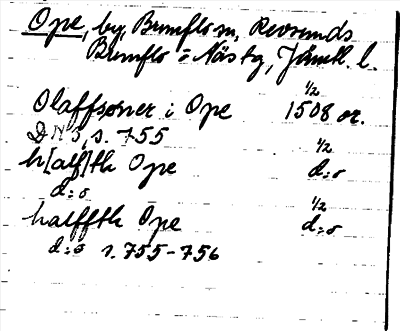 Ope, by, Brunflo sn, Revsunds
Brunflo o Näs tg, Jämtl. l.
Olaffsoner i Ope 1/2 1508 or.
DN 3, s. 755
h[alf]th Ope 1/2 d:o
d:o
halffth Ope 1/2 d:o
d:o s. 755-756